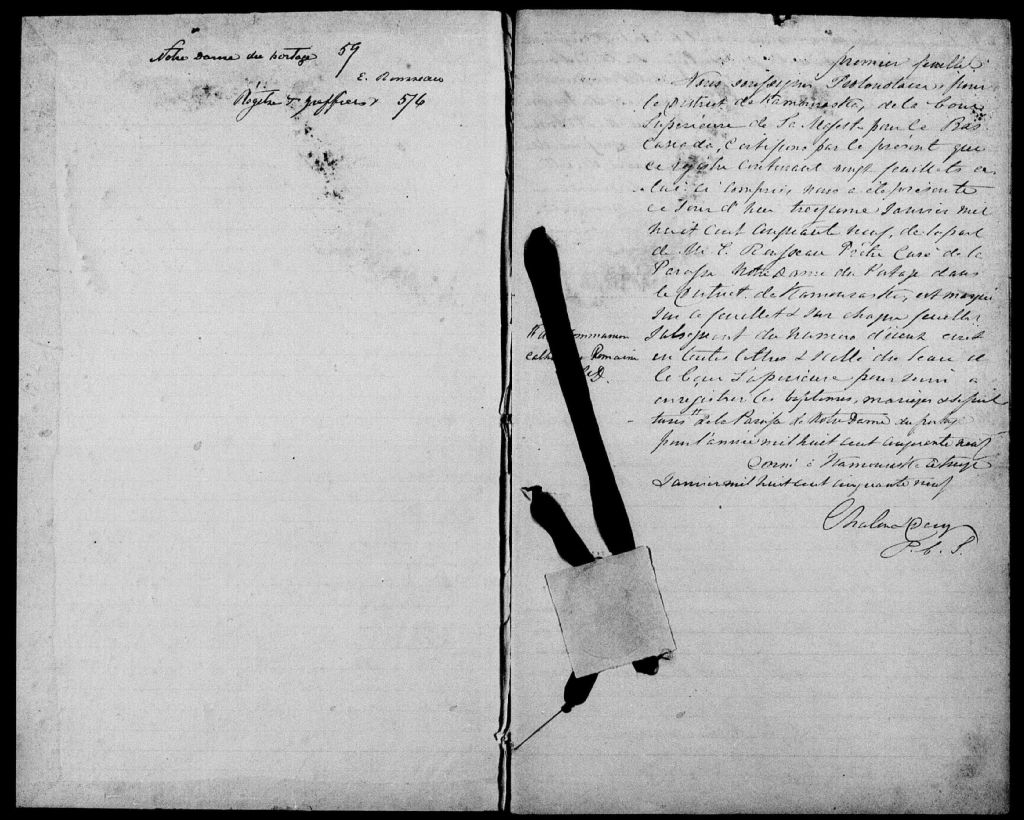 Notre Dame du portage 59
E. Rousseau
Régitre & greffiers 576
premier feuillet
Nous soussigné Protonotaire, pour
le District de Kamouraska, de la Cour
Supérieure de Sa Majesté pour le Bas
Canada, Certifions par le présent que
ce régistre contenant vingt feuillets ce
lui ci compris, nous a été présenté
ce Jour d'hui treizieme Janvier mil
huit cent cinquante neuf, de la part
de M E. Rousseau Prêtre Curé de la
Paroisse Notre Dame du Portage dans
le District de Kamouraska, est marqué
sur ce feuillet & sur chaque feuillet
subséquent du numéro d'iceux écrit
en toutes lettres & scellé du sceau de
la Cour Supérieure pour servir a
enregistrer les baptêmes, mariages & sépul
tures # de la Paroisse de Notre Dame du portage
pour l'année mil huit cent cinquante neuf
# de Communion
Romaine
Donné à Kamouraska ce treize
Janvier mil huit cent cinquante neuf
P. C. S.